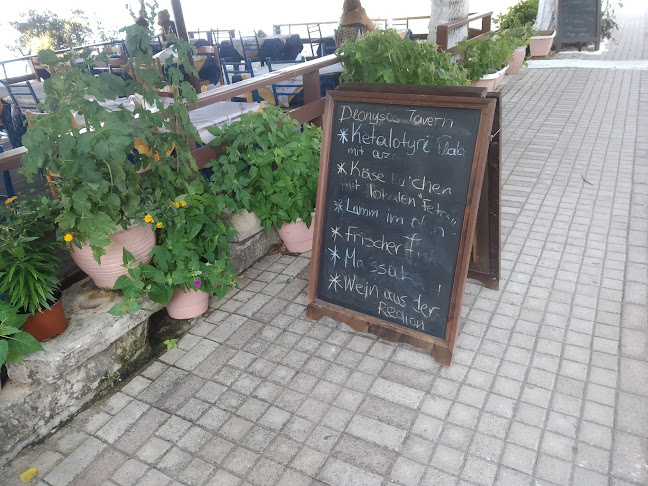 Dionysos Tavern
* Ketalotyri
mit
* Käse kuchen
mit lokalen "Feta"
* Lamm im
* Frischer
* Moussaka
* Wein aus der
Region